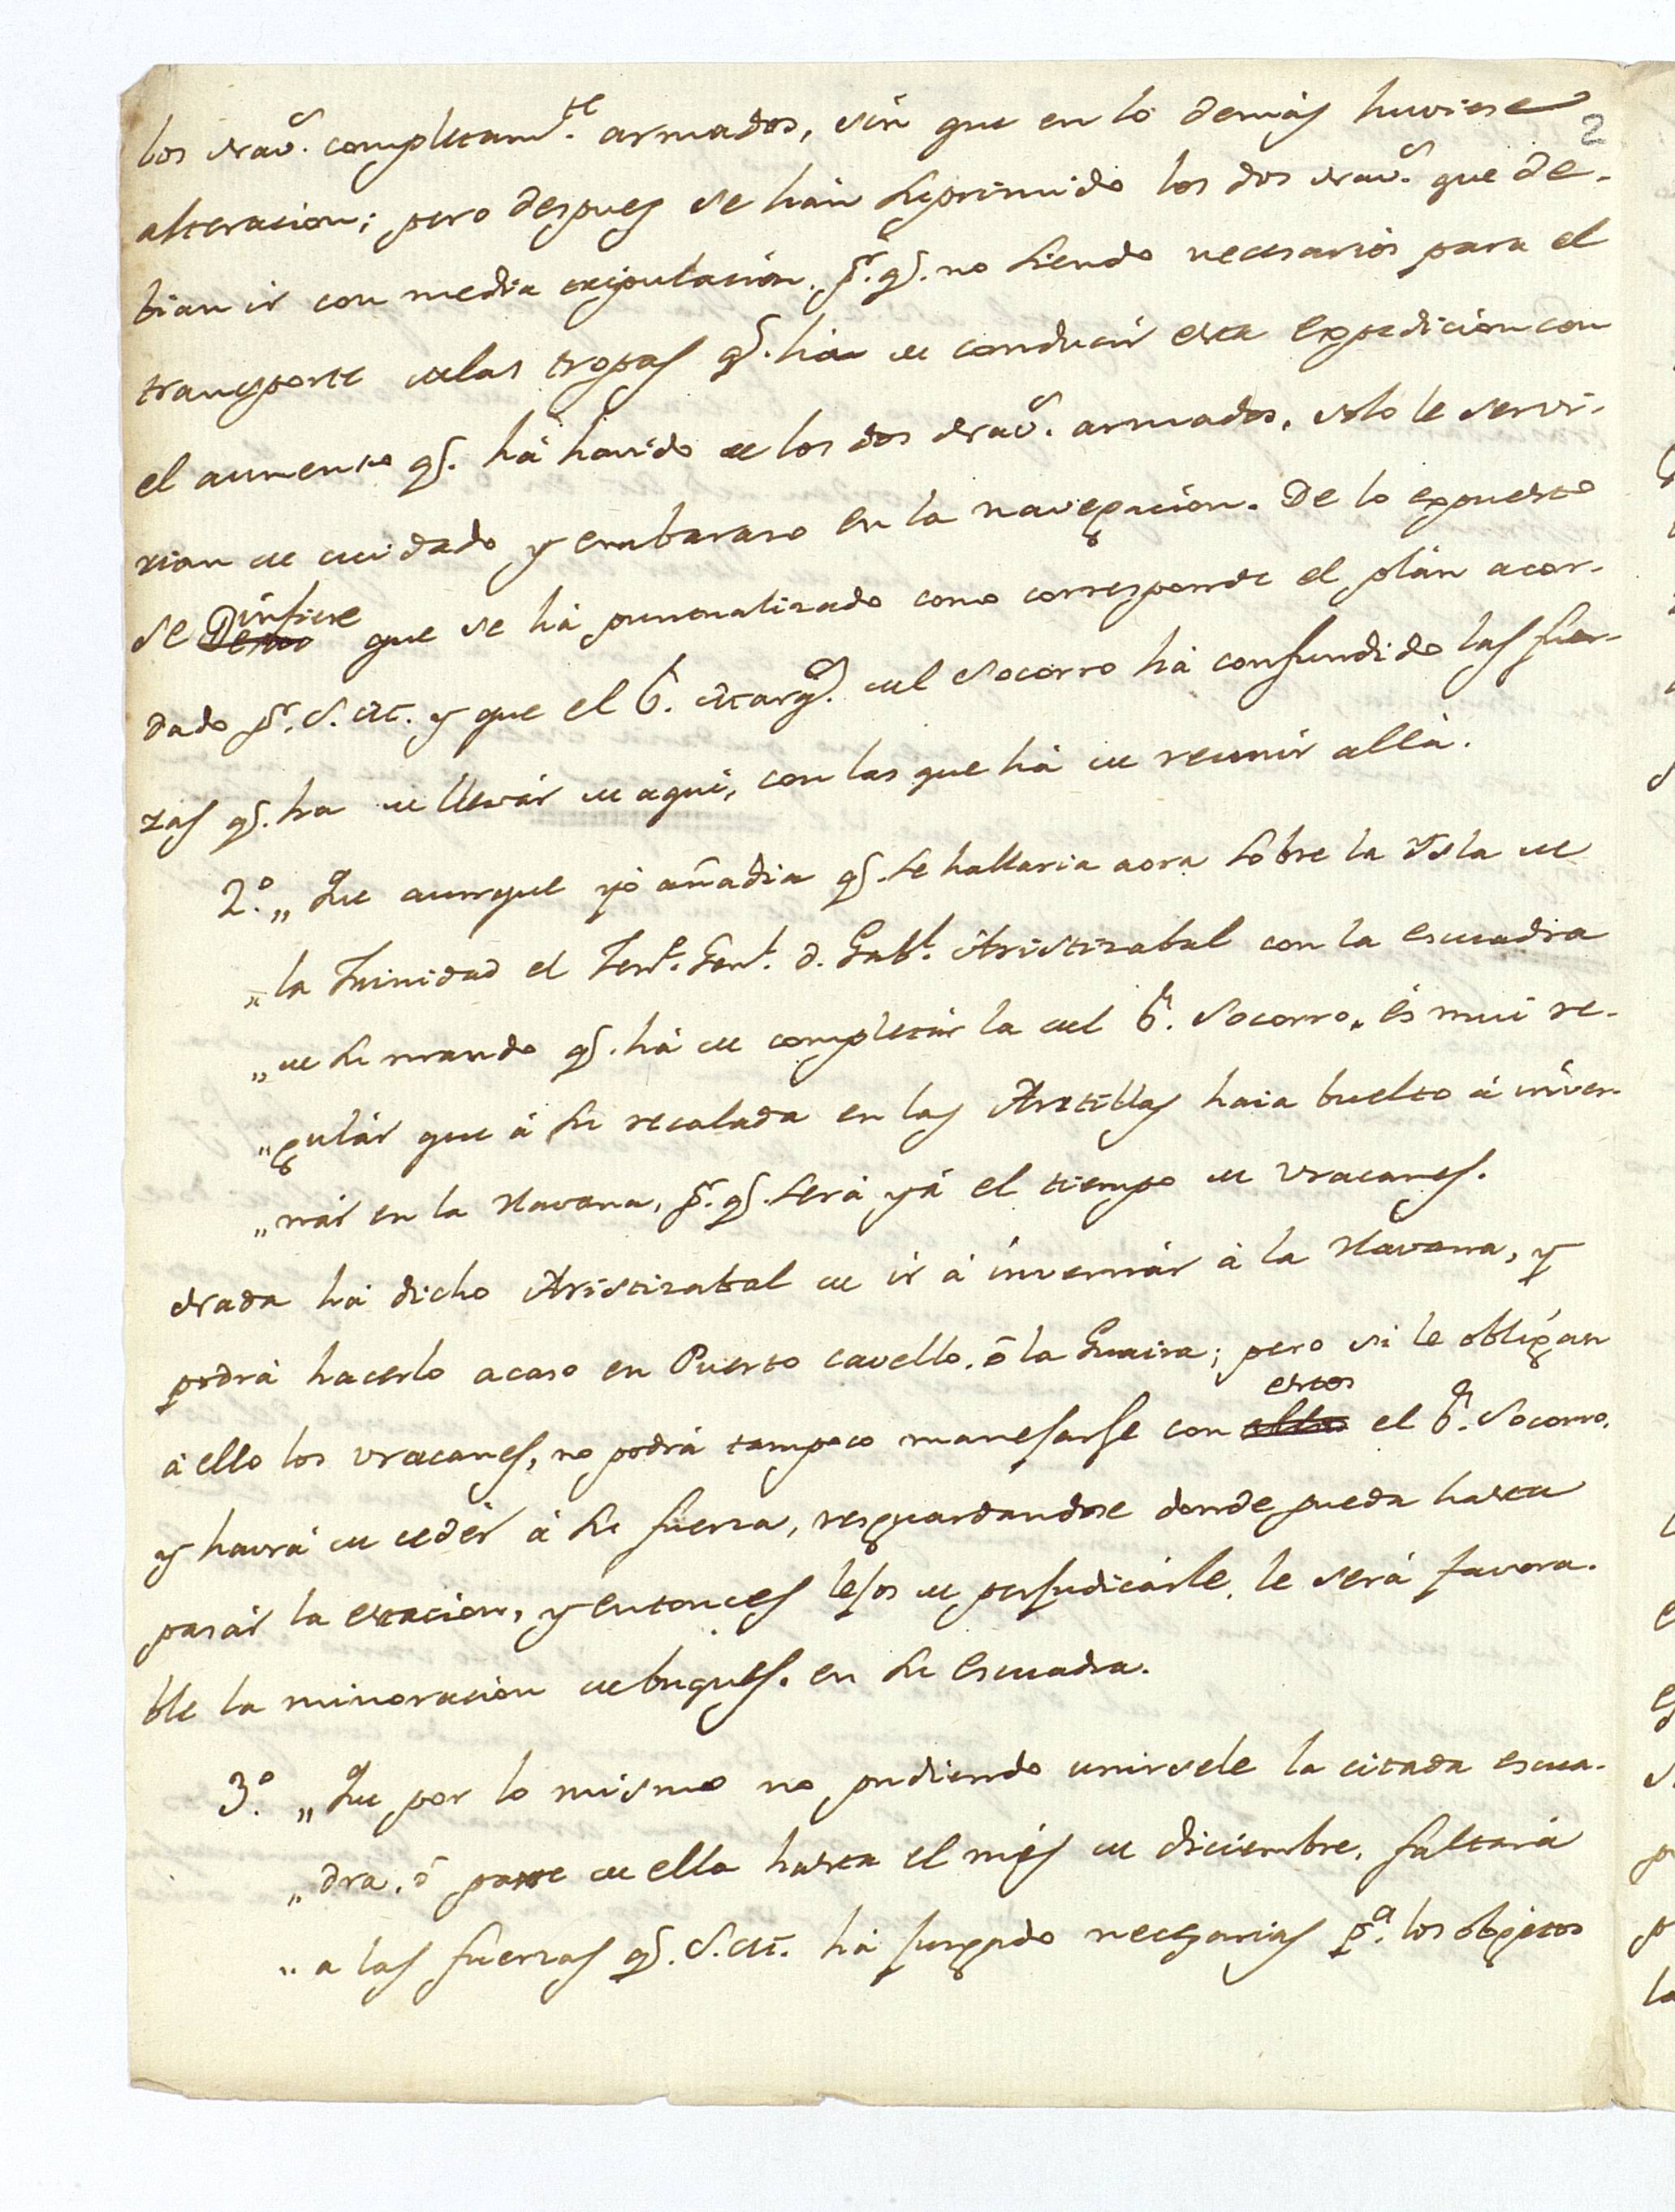 los nav.s completam.te armados, sin que en lo demás huviese
2
alteracion; pero despues se hán suprimido los dos nav.s que de-
bian ir con media tripulación, p.r q.e no siendo necesarios para el
transporte de las tropas q.e ha de conducir esta expedición con
el aumento q.e há havido de los dos nav.s armados, solo le servi-
rian de cuidado y embaraso en la navegacion. De lo expuesto
se infiere que se há puntualizado como corresponde el plán acor-
dado p.r S. M. y que el B. Marq.s del Socorro há confundido las fuer-
zas q.e ha de llevár de aqui, con las que há de reunir allá.
2.º „ Que aunque yó añadia q.e se hallaria aora sobre la Isla de
„ la Trinidad el Ten.te Gen.l d. Gab.l Aristizabal con la escuadra
„ de su mando q.e há de completár la del B.n Socorro, és mui re-
„ gulár que á su recalada en las Antillas haia buelto á inver-
„ nár en la Havana, p.r q.e será yá el tiempo de Uracanes.
Nada há dicho Aristizabal de ir á invernár á la Havana, y
podrá hacerlo acaso en Puerto cavello, ó la Guaira; pero si le obligan
á ello los uracanes, no podrá tampoco manejarse con estos el B.n Socorro,
y havrá de cedér á su fuerza, resguardandose donde pueda hasta
pasár la estacion, y entonces lejos de perjudicárle, le será favora-
ble la minoracion de buques en su escuadra.
3.º „ Que por lo mismo no pudiendo unirsele la citada escua-
„ dra, ó parte de ella hasta el més de diciembre, faltará
„ a las fuerzas q.e S. M. há juzgado necesarias p.a los objetos